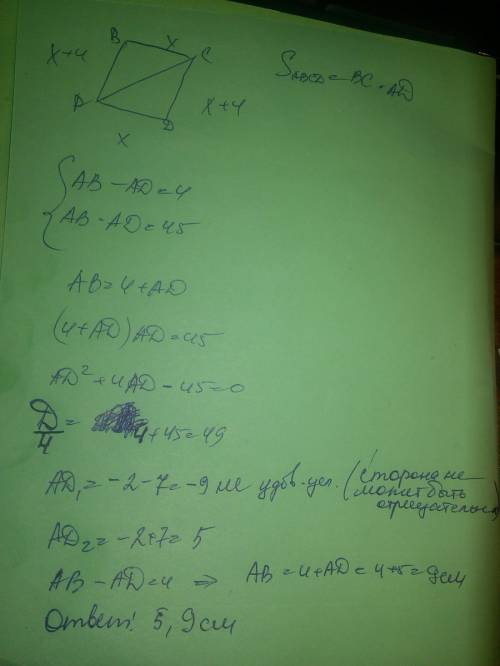 B
x
C
x+4
A
x+4
D
x
S ABCD = BC · AD
{ AB − AD = 4
AB · AD = 45
AB = 4 + AD
(4 + AD) AD = 45
AD² + 4AD − 45 = 0
D/4 = 4 + 45 = 49
AD₁ = −2 − 7 = −9 не удов. усл. (сторона не
может быть
отрицательна)
AD₂ = −2 + 7 = 5
AB − AD = 4 ⇒ AB = 4 + AD = 4 + 5 = 9 см
Ответ: 5, 9 см